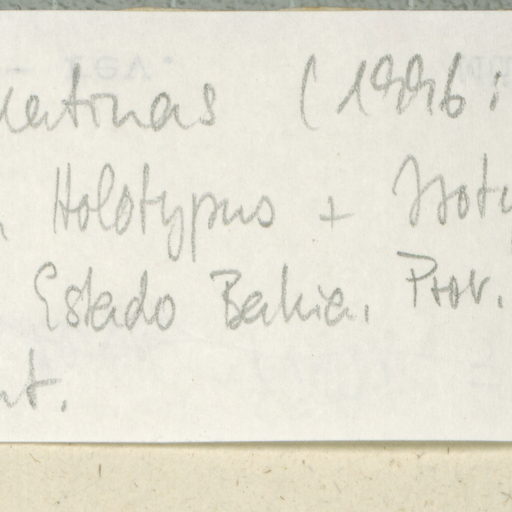 (1996:
Holotypus + Isoty
Estado Bahia. Prov.
nt.